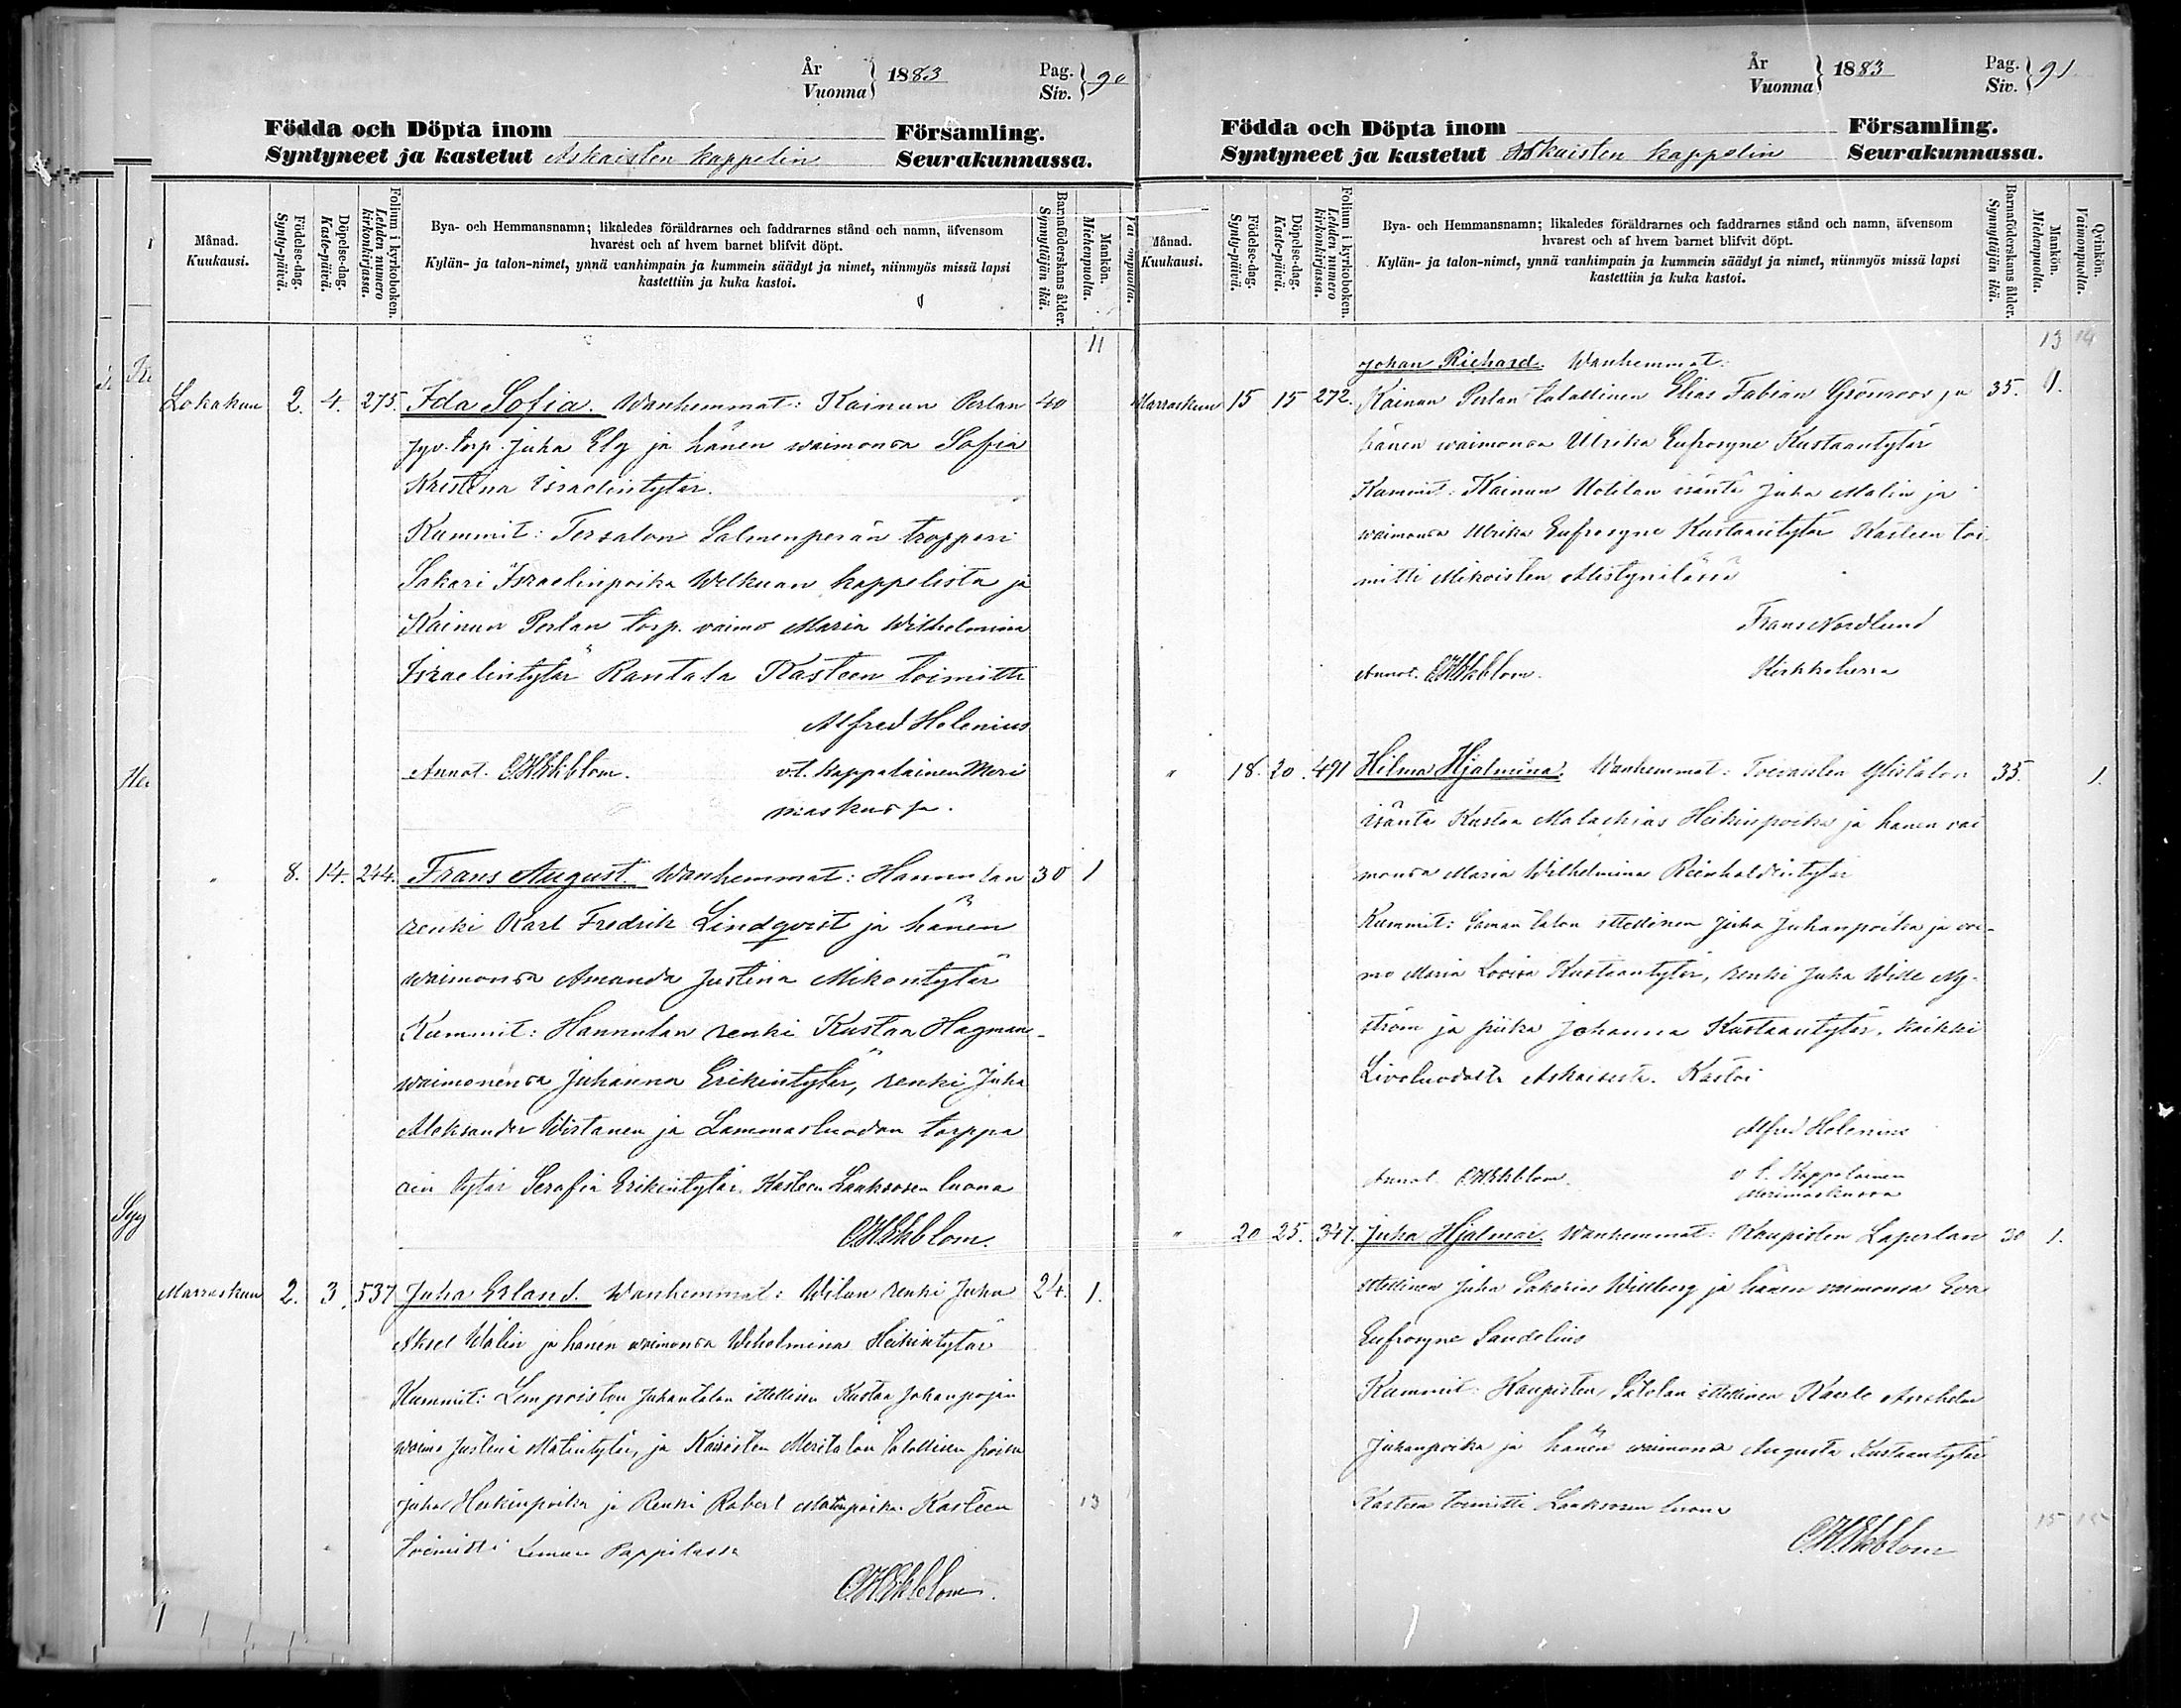 År
Vuonna } 1883
Pag.
Siv. } 90
Födda och Döpta inom Församling.
Syntyneet ja kastetut Askaisten kappelin Seurakunnassa.
Månad.
Kuukausi.
Födelse-dag.
Synty-päivä.
Döpelse-dag.
Kaste-päivä.
Folium i kyrkoboken.
Lehden numero
kirkonkirjassa.
Bya- och Hemmansnamn; likaledes föräldrarnes och faddrarnes stånd och namn, äfvensom
hvarest och af hvem barnet blifvit döpt.
Kylän- ja talon-nimet, ynnä vanhimpain ja kummein säädyt ja nimet, niinmyös missä lapsi
kastettiin ja kuka kastoi.
Barnaföderskans ålder.
Synnyttäjän ikä.
Mankön.
Miehenpuolia.
11
Lokakun 2. 4. 275. Ida Sofia. Wanhemmat: Kainun Perlan 40
jyv. torp. Juha Elg ja hänen waimonsa Sofia
Kristina Israelintytär.
Kummit: Tersalon Salmenperän troppari
Sakari Israelinpoika Welkuan kappelista ja
Kainun Perlan torp. vaimo Maria Wilhelmina
Israelintytär Rantala Kasteen toimitti
Alfred Helenius
Annot. C.H.Ekblom. v.t. kappalainen Meri
maskussa.
" 8. 14. 244. Frans August. Wanhemmat: Hannulan 30 1
renki Karl Fredrik Lindqvist ja hänen
waimonsa Amanda Justina Mikontytär
Kummit: Hannulan renki Kustaa Hagman
waimonensa Juhanna Erikintytär, renki Juha
Aleksander Wirtanen ja Lammasluodon torppa
rin tytär Serafia Erikintytär. Kasteen Laaksosen luona
C.H.Ekblom.
Marraskun 2. 3. 537 Juha Erland. Wanhemmat: Wilan renki Juha 24. 1.
Aksel Wälin ja hänen waimonsa Wilhelmina Heikintytär
Kummit: Lempoisten Juhantalan itellinen Kustaa Johanpojan
waimo Justina Matintytär, ja Kairisten Meritalon talollisen poika
Juha Heikinpoika ja Renki Robert Matinpoika. Kasteen
toimitti Lemun Pappilassa
13
C.H.Ekblom.
År
Vuonna } 1883
Pag.
Siv. } 91
Födda och Döpta inom Församling.
Syntyneet ja kastetut Askaisten kappelin Seurakunnassa.
Månad.
Kuukausi.
Födelse-dag.
Synty-päivä.
Döpelse-dag.
Kaste-päivä.
Folium i kyrkoboken.
Lehden numero
kirkonkirjassa.
Bya- och Hemmansnamn; likaledes föräldrarnes och faddrarnes stånd och namn, äfvensom
hvarest och af hvem barnet blifvit döpt.
Kylän- ja talon-nimet, ynnä vanhimpain ja kummein säädyt ja nimet, niinmyös missä lapsi
kastettiin ja kuka kastoi.
Barnaföderskans ålder.
Synnyttäjän ikä.
Mankön.
Miehenpuolia.
Qvinkön.
Vaimonpuolia.
13 14
Johan Richard. Wanhemmat:
Marraskun 15 15 272. Kainun Perlan talollinen Elias Fabian Grönroos ja 35. 1.
hänen waimonsa Ulrika Eufrosyne Kustaantytär
Kummit: Kainun Uotilan isäntä Juha Malin ja
waimonsa Ulrika Eufrosyne Kustaantytär Kasteen toi
mitti Mikoisten Alistynilässä
Frans Nordlund
Annot. C.H.Ekblom. Kirkkoherra
" 18. 20. 491 Hilma Hjalmina. Wanhemmat: Toivaisten Ylistalon 35. 1.
isäntä Kustaa Malachias Heikinpoika ja hänen vai
monsa Maria Wilhelmina Reinholdintytär
Kummit: Saman talon ittellinen Juha Juhanpoika ja vai-
mo Maria Lovisa Kustaantytär, renki Juha Wille Ny-
ström ja piika Johanna Kustaantytär. kaikki
Livoluodosta Askaisista. Kastoi
Alfred Helenius
Annot. C.H.Ekblom. v.t. Kappalainen
Merimaskussa
" 20 25. 347. Juha Hjalmar. Wanhemmat: Kaupisten Laperlan 30 1.
ittellinen Juha Sakarias Willberg ja hänen vaimonsa Eva
Eufrosyne Sandelius
Kummit: Kaupisten ittellinen Kaarle
Juhanpoika ja hänen waimonsa Augusta Kustaantytär
Kasteen toimitti Laaksosen luona
15 15
C.H.Ekblom